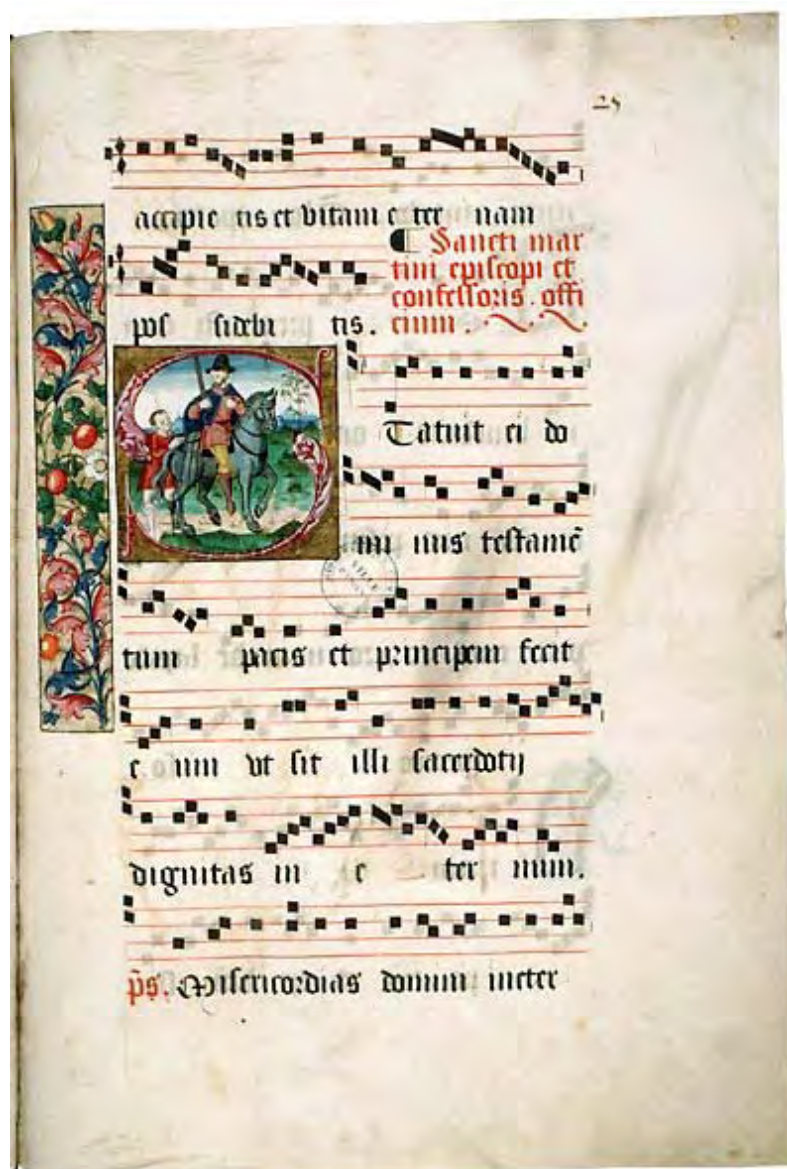 25
accipie tis et vitam e ter nam
¶ Sancti mar
tini episcopi et
confessoris. offi
cium.
pos sidebi tis.
Statuit ei do
mi nus testamẽ
tum pacis et principem fecit
e um vt sit illi sacerdotij
dignitas in e ter num.
p̃s. Misericordias domini ineter
VILLE